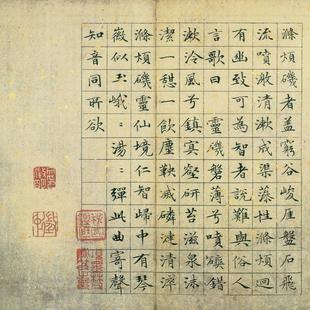 滌煩磯者盖窮谷峻崖盤石飛
流噴激清漱成渠藻性滌煩迴
有幽致可為智者說難與俗人
言歌曰 靈磯磐薄兮噴磧錯
漱泠風兮鎮冥壑研苔滋泉沫
潔一憩一飲塵鞅滅磷漣清淬
滌煩磯靈仙境仁智歸中有琴
徽似玉峨〻湯〻彈此曲寄聲
知音同所欲